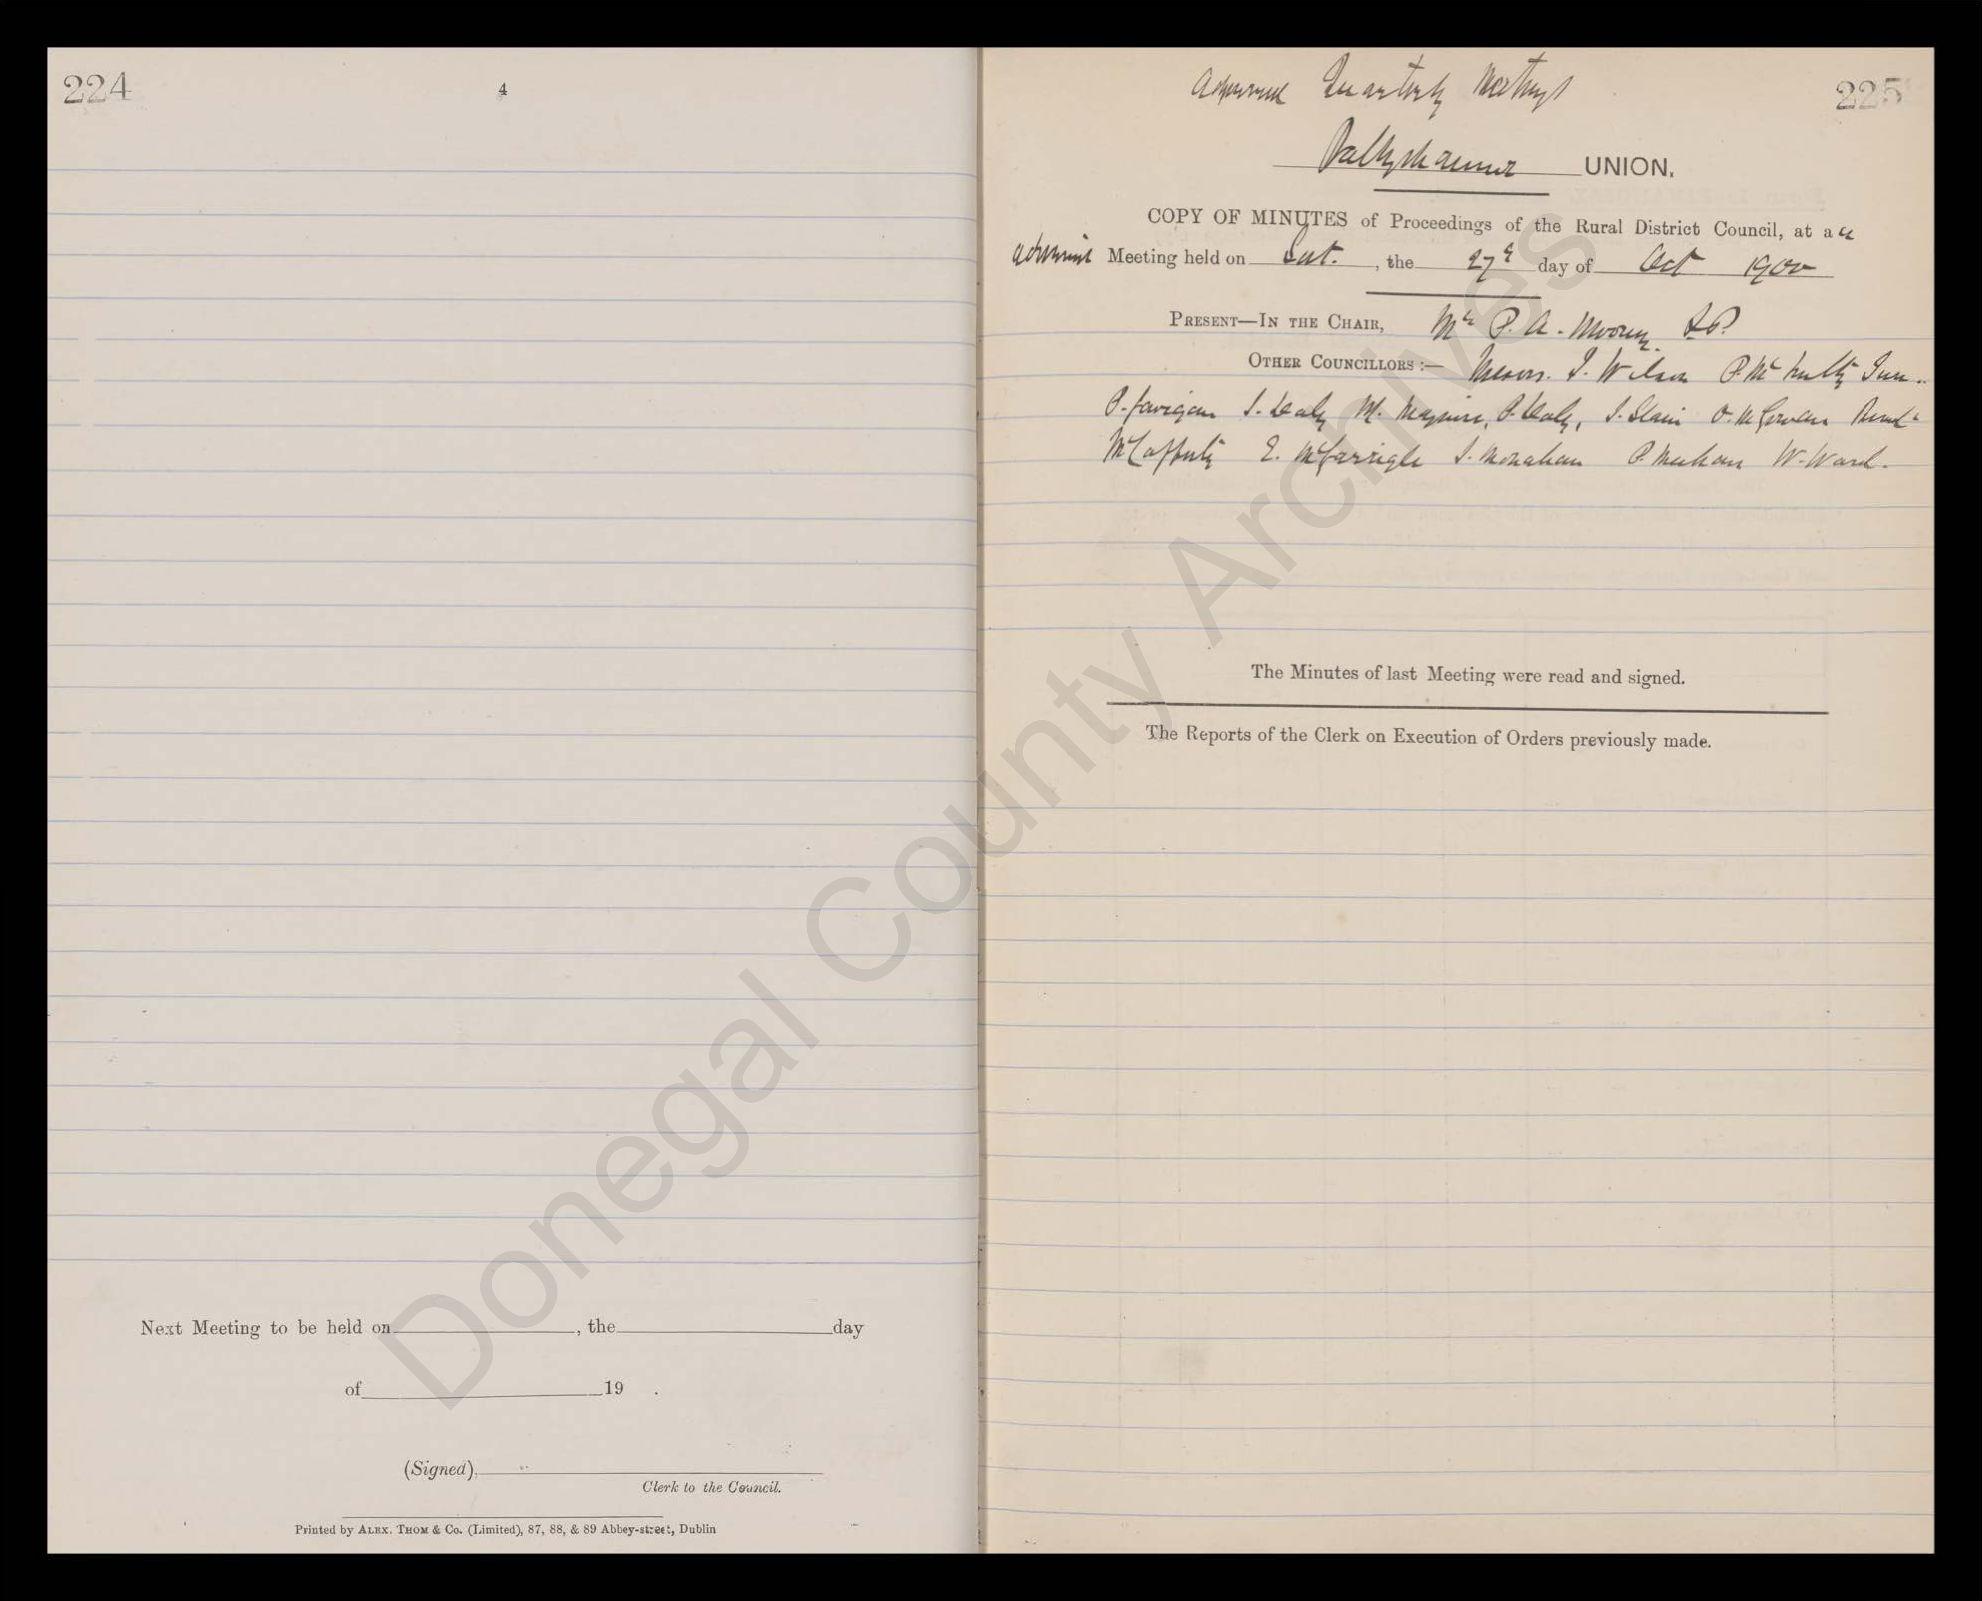 224
4
Next Meeting to be held on , the day
of 19 .
(Signed)
Clerk to the Council.
Printed by ALEX. THOM & Co. (Limited), 87, 88, & 89 Abbey-street, Dublin
225
Adjourned Quarterly Meeting
Ballyshannon UNION.
COPY OF MINUTES of Proceedings of the Rural District Council, at a
Meeting held on Sat. , the 27th day of Oct 1900
PRESENT—IN THE CHAIR, Mr P. A. Mooney J.P.
OTHER COUNCILLORS :— Messrs. J. Wilson P. McNulty Junr.
P. Gavigan J. Daly M. Maguire, P. Daly, J. Slain O. McGowan Bernd
McCafferty E. McGarrigle J. Monahan P. Meehan W. Ward.
The Minutes of last Meeting were read and signed.
The Reports of the Clerk on Execution of Orders previously made.
Donegal County Archives